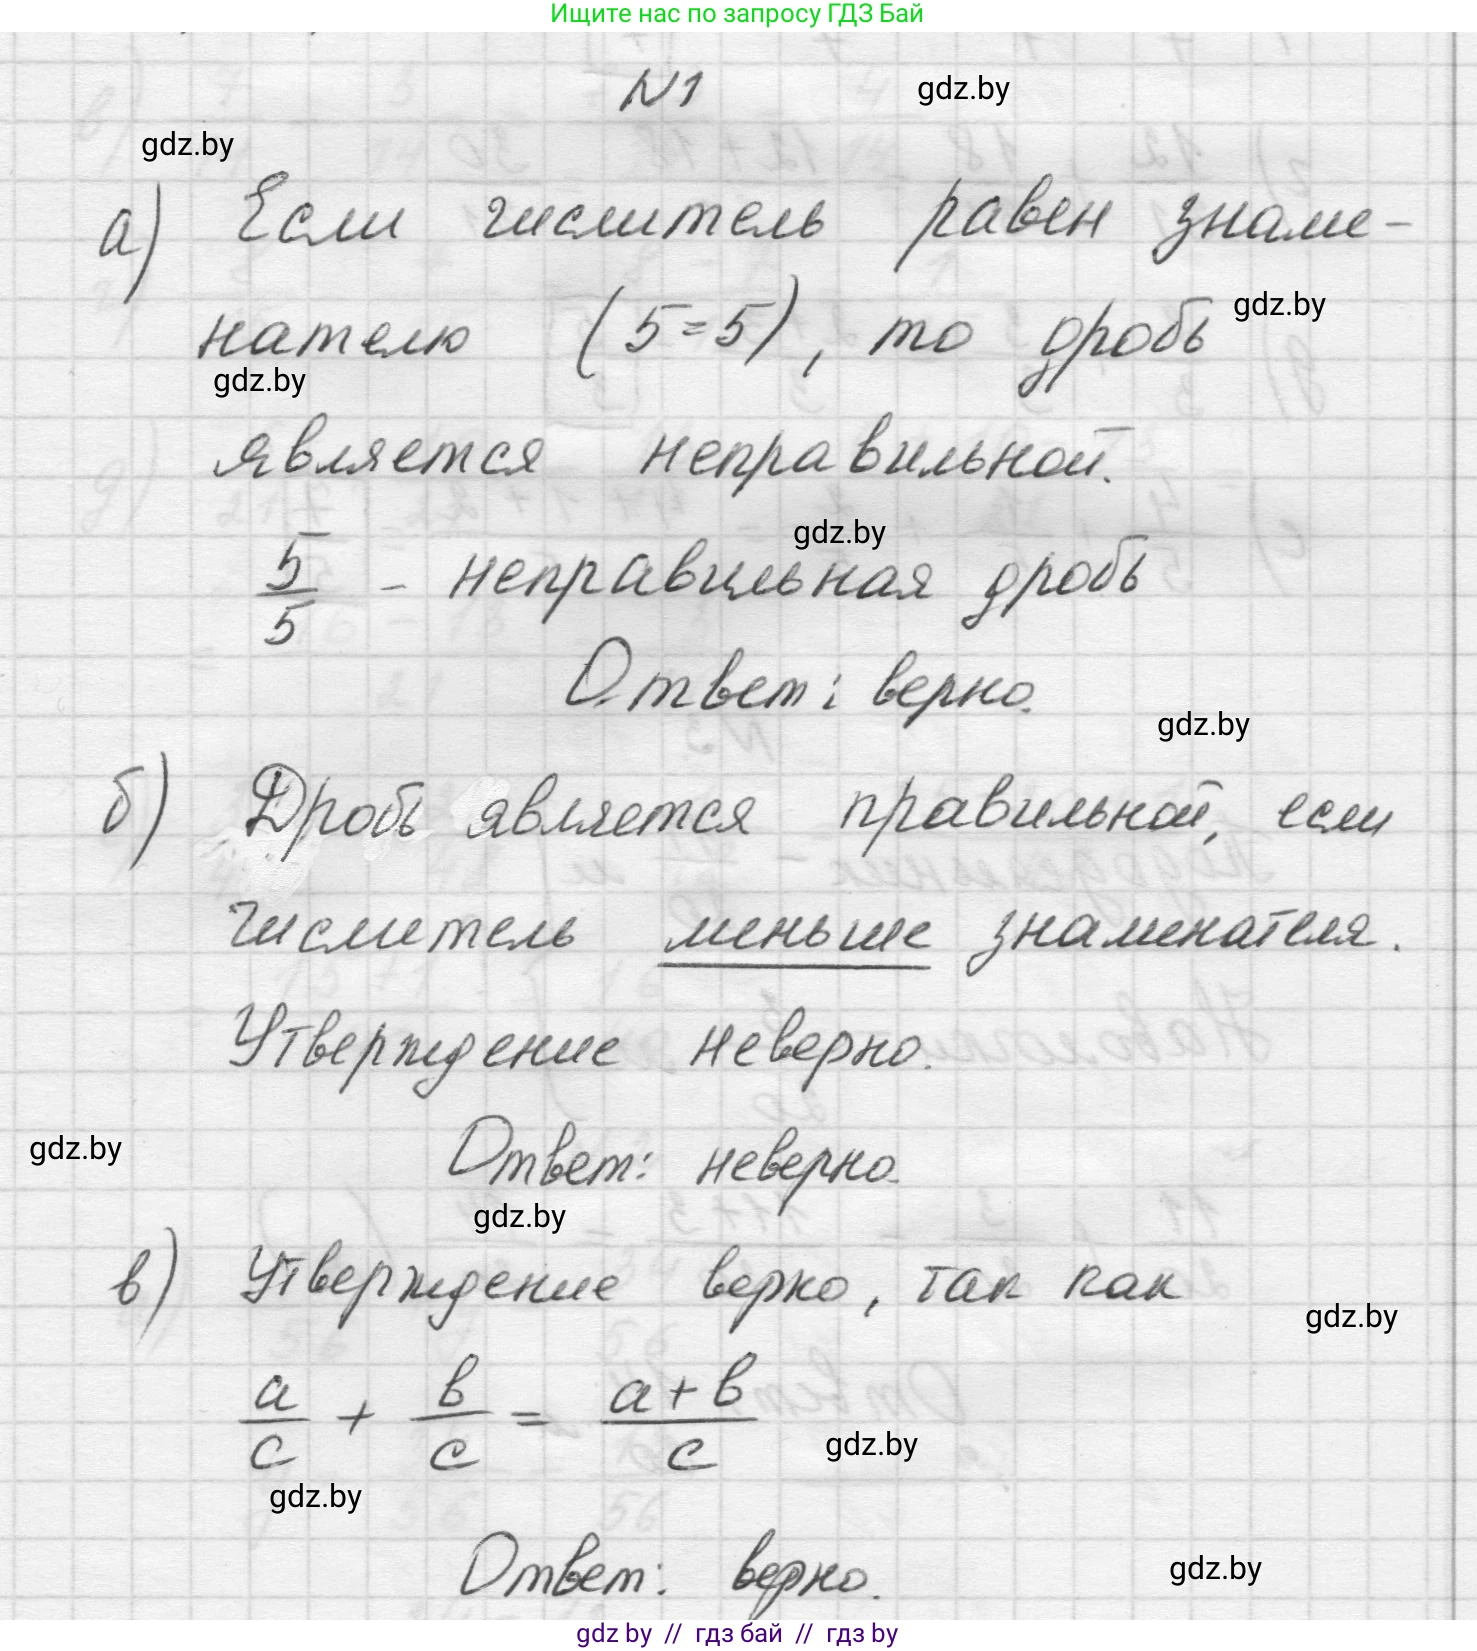 Ищите нас по запросу ГДЗ Бай
N1
gdz.by
gdz.by
а) Если числитель равен знаме-
нателю (5=5), то дробь
gdz.by
gdz.by
является неправильной.
gdz.by
5/5 - неправильная дробь
Ответ: верно.
gdz.by
б) Дробь является правильной, если
числитель меньше знаменателя.
Утверждение неверно.
gdz.by
Ответ: неверно.
gdz.by
в) Утверждение верно, так как
gdz.by
a/c + b/c = a+b/c
gdz.by
gdz.by
Ответ: верно.
gdz.by
gdz by // гдз бай // гдз by